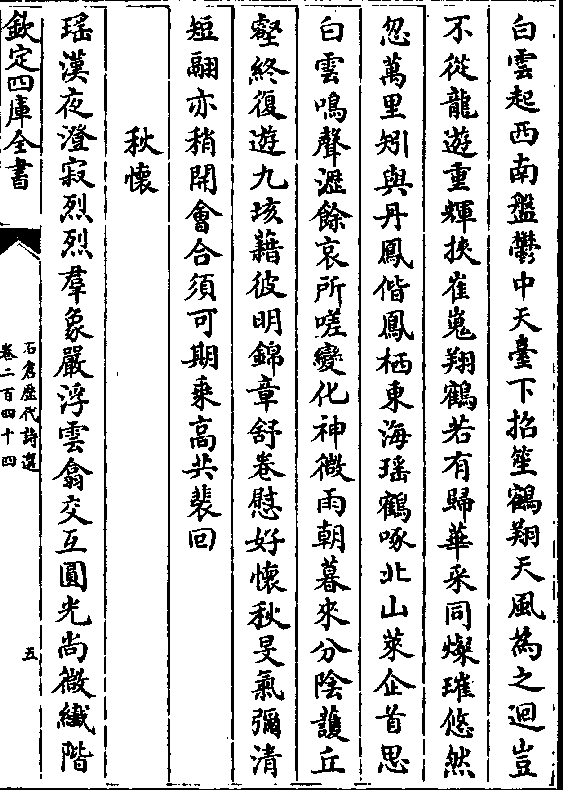 白雲起西南盤鬱中天臺下招笙鶴翔天風為之迴豈
不從龍遊重輝挾崔嵬翔鶴若有歸華采同燦璀悠然
忽萬里矧與丹鳳偕鳳栖東海瑶鶴啄北山萊企首思
白雲鳴聲瀝餘哀所嗟變化神微雨朝暮來分陰護丘
壑終復遊九垓藉彼明錦章舒卷慰好懷秋旻氣彌清
短翮亦稍開會合須可期乘高共裴回
秋懷
瑶漢夜澄寂烈烈羣象嚴浮雲翕交互圓光尚微纖階
欽定四庫全書
石倉歷代詩選
卷二百四十四
五